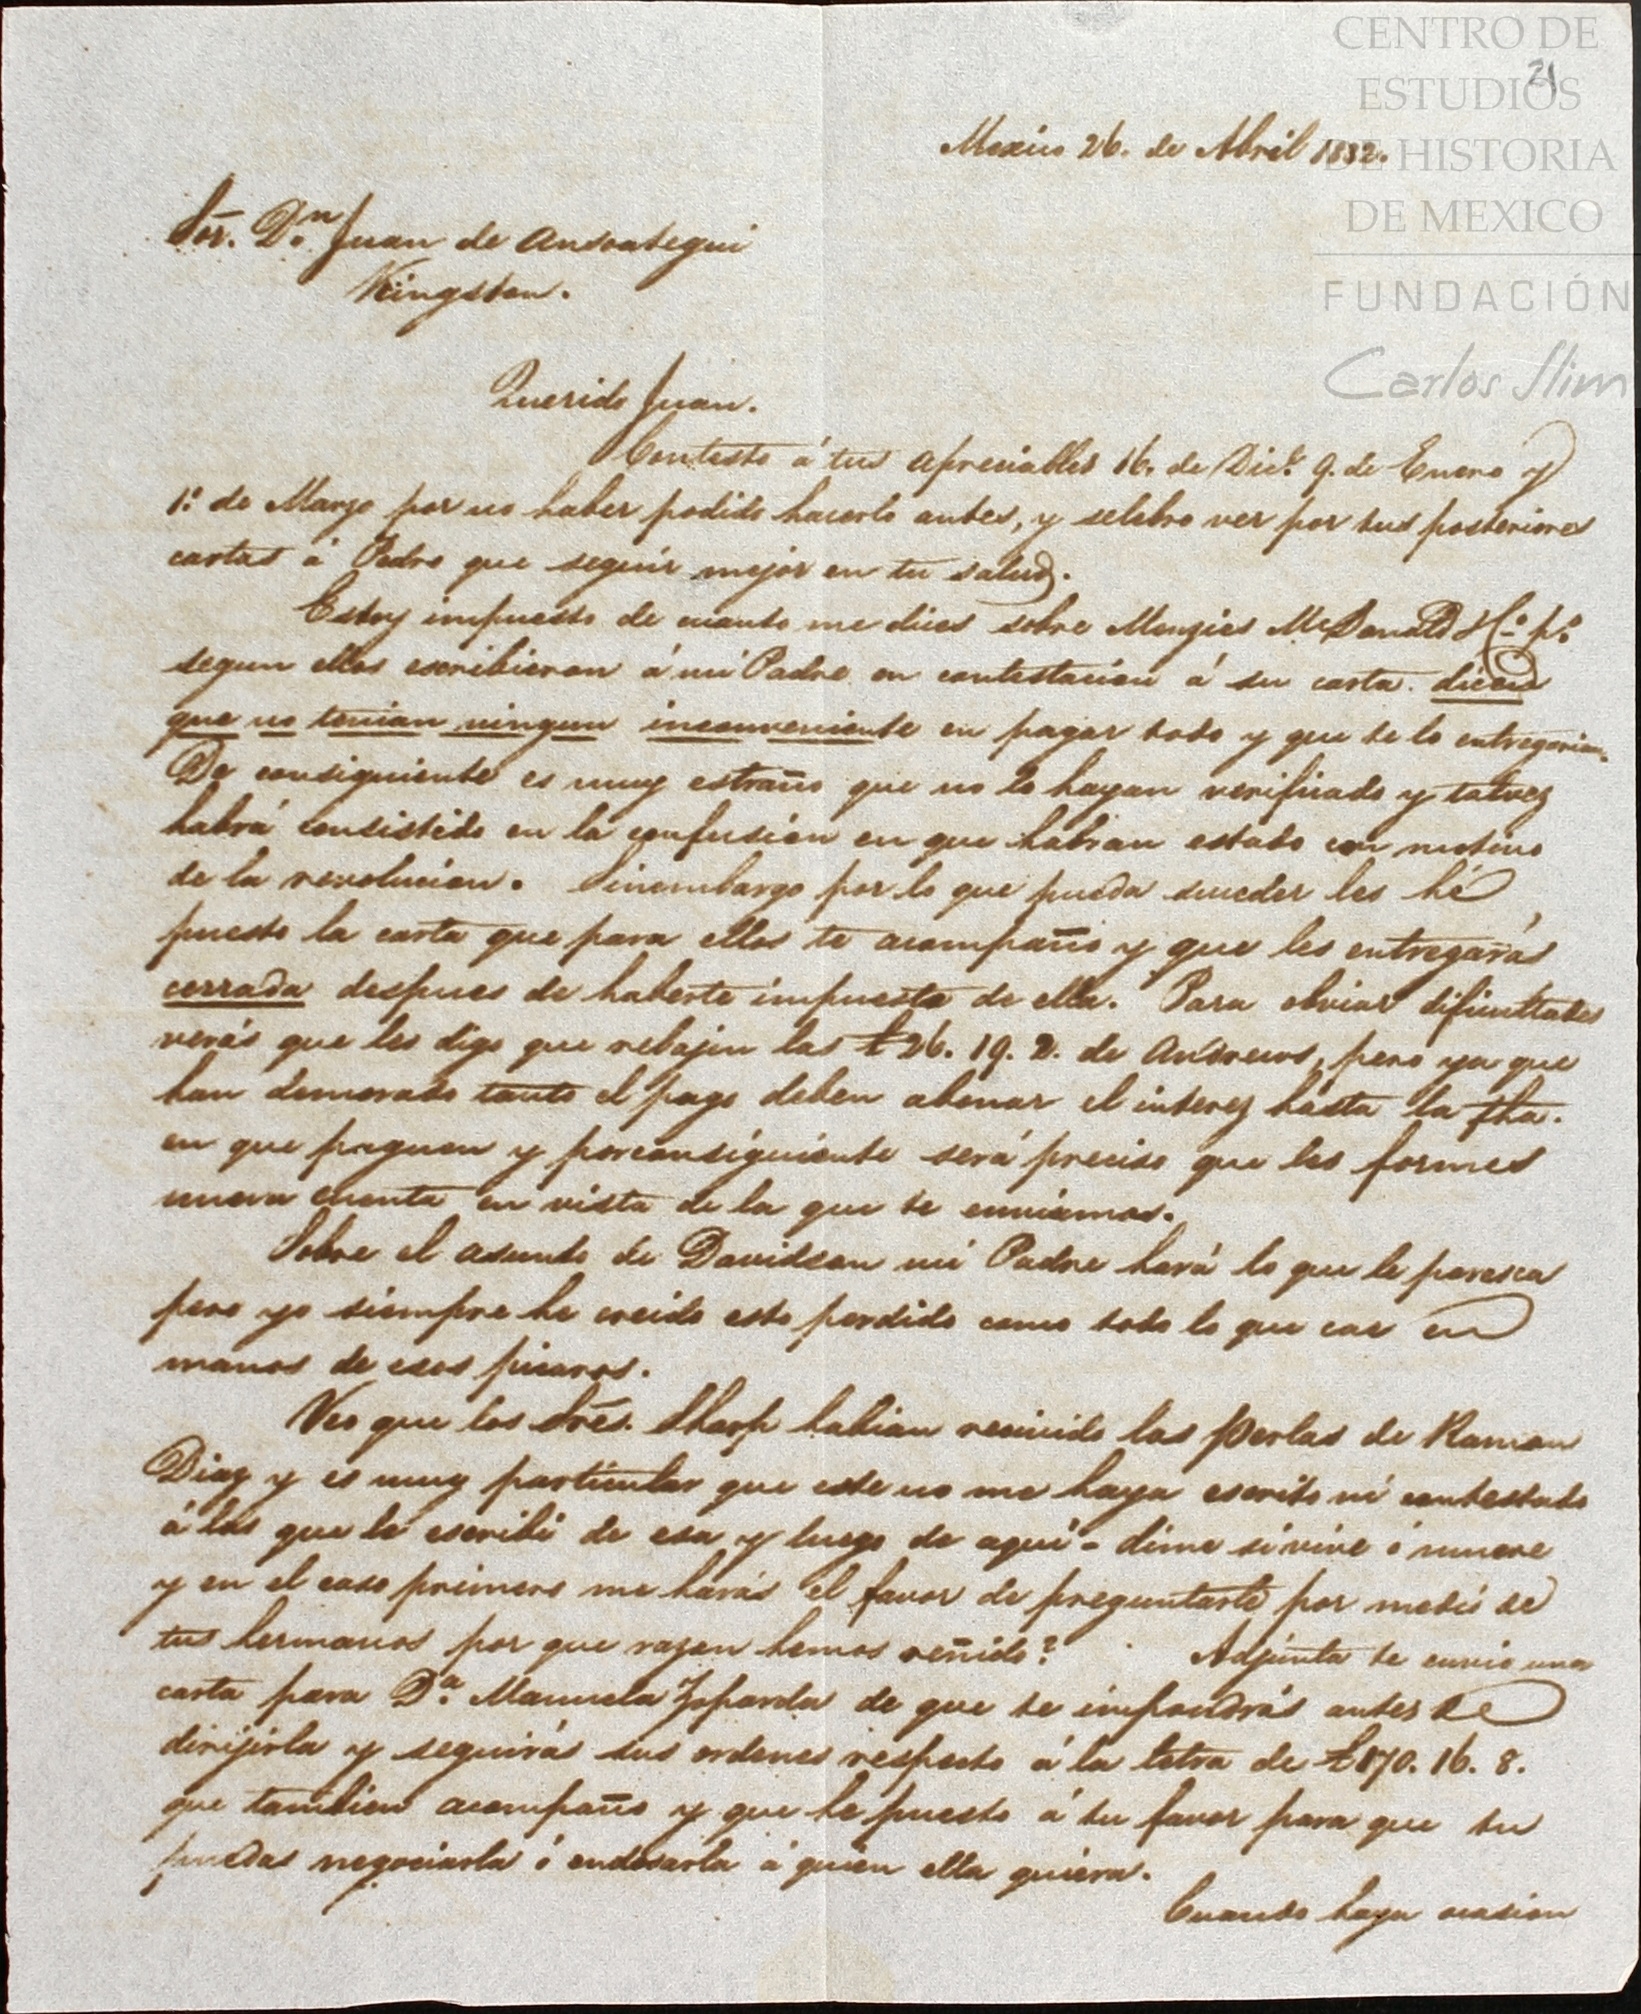 CENTRO DE
ESTUDIOS
DE HISTORIA
DE MEXICO
FUNDACIÓN
Carlos Slim
21
Mexico 26. de Abril 1832.
Sōr. Dn. Juan de Ansoategui
Kingston.
Querido Juan.
Contesto á tus apreciables 16. de Dice. 9. de Enero y
1º. de Marzo por no haber podido hacerlo antes, y selebro ver por tus posteriores
cartas á Pedro que seguir mejor en tu salud.
Estoy impuesto de cuanto me dices sobre Menzies McDonald & Co. po.
segun ellos escribieron á mi Padre en contestacion á su carta. dicen
que no tenian ningun inconveniente en pagar todo y que te lo entregarian.
De consiguiente es muy estraño que no lo hayan verificado y talvez
habrá consistido en la confusion en que habran estado con motivo
de la revolucion. Sinembargo por lo que pueda suceder les hé
puesto la carta que para ellos te acompaño y que les entregarás
cerrada despues de haberte impuesto de ella. Para obviar dificultades
verás que les digo que rebajen las £26. 19. 2. de Andrews, pero ya que
han demorado tanto el pago deben abonar el interez hasta la fha.
en que paguen y porconsiguiente será preciso que les formes
nueva cuenta en vista de la que te enviamos.
Sobre el asunto de Davidson mi Padre hará lo que le paresca
pero yo siempre he creido esto perdido como todo lo que cae en
manos de esos picaros.
Veo que los Srēs. Sharp habian recivido las perlas de Ramon
Diaz y es muy particular que este no me haya escrito ni contestado
á las que le escribi de esa y luego de aqui - dime si vive ó muere
y en el caso primero me harás el favor de preguntarle por medio de
tus hermanos por que razon hemos reñido? Adjunta te envio una
carta para Da. Manuela de que te impondrás antes de
dirijirla y seguirás sus ordenes respecto á la letra de £870. 16. 8.
que tambien acompaño y que he puesto á tu favor para que tu
puedas negociarla ó endosarla á quien ella quiera.
Cuando haya ocasion